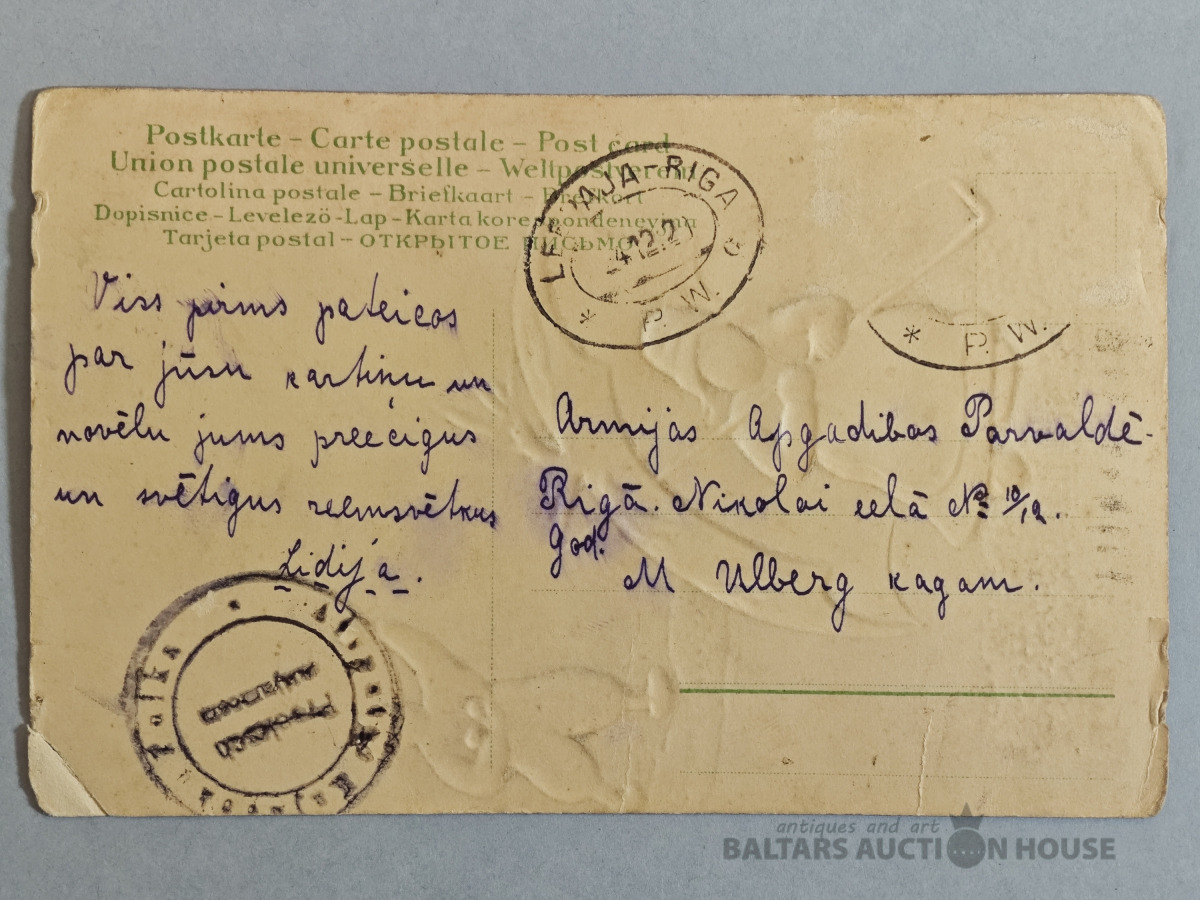 Postkarte – Carte postale – Post card
Union postale universelle – Weltpostverein
Cartolina postale – Briefkaart – Brefkort
Dopisnice – Levelezö-Lap – Karta korespondencyjna
Tarjeta postal – ОТКРЫТОЕ ПИСЬМО
LEEPAJA–RIGA
4.12.21
* P. W. G
* P. W.
Viss pirms pateicos
par jūsu kartiņu un
novēlu jums preecigus
un svētigus seemsvētkus
Lidija.
Armijas Apgadibas Parvaldē-
Rigā. Nikolai eelā № 10/12.
God.
M Ulberg kagam.
antiques and art
BALTARS AUCTION HOUSE